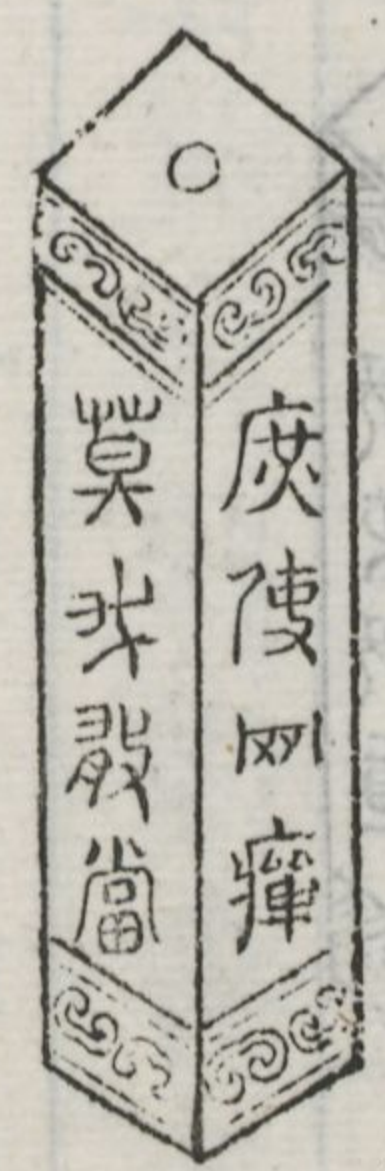 庶疫剛癉
莫我敢當